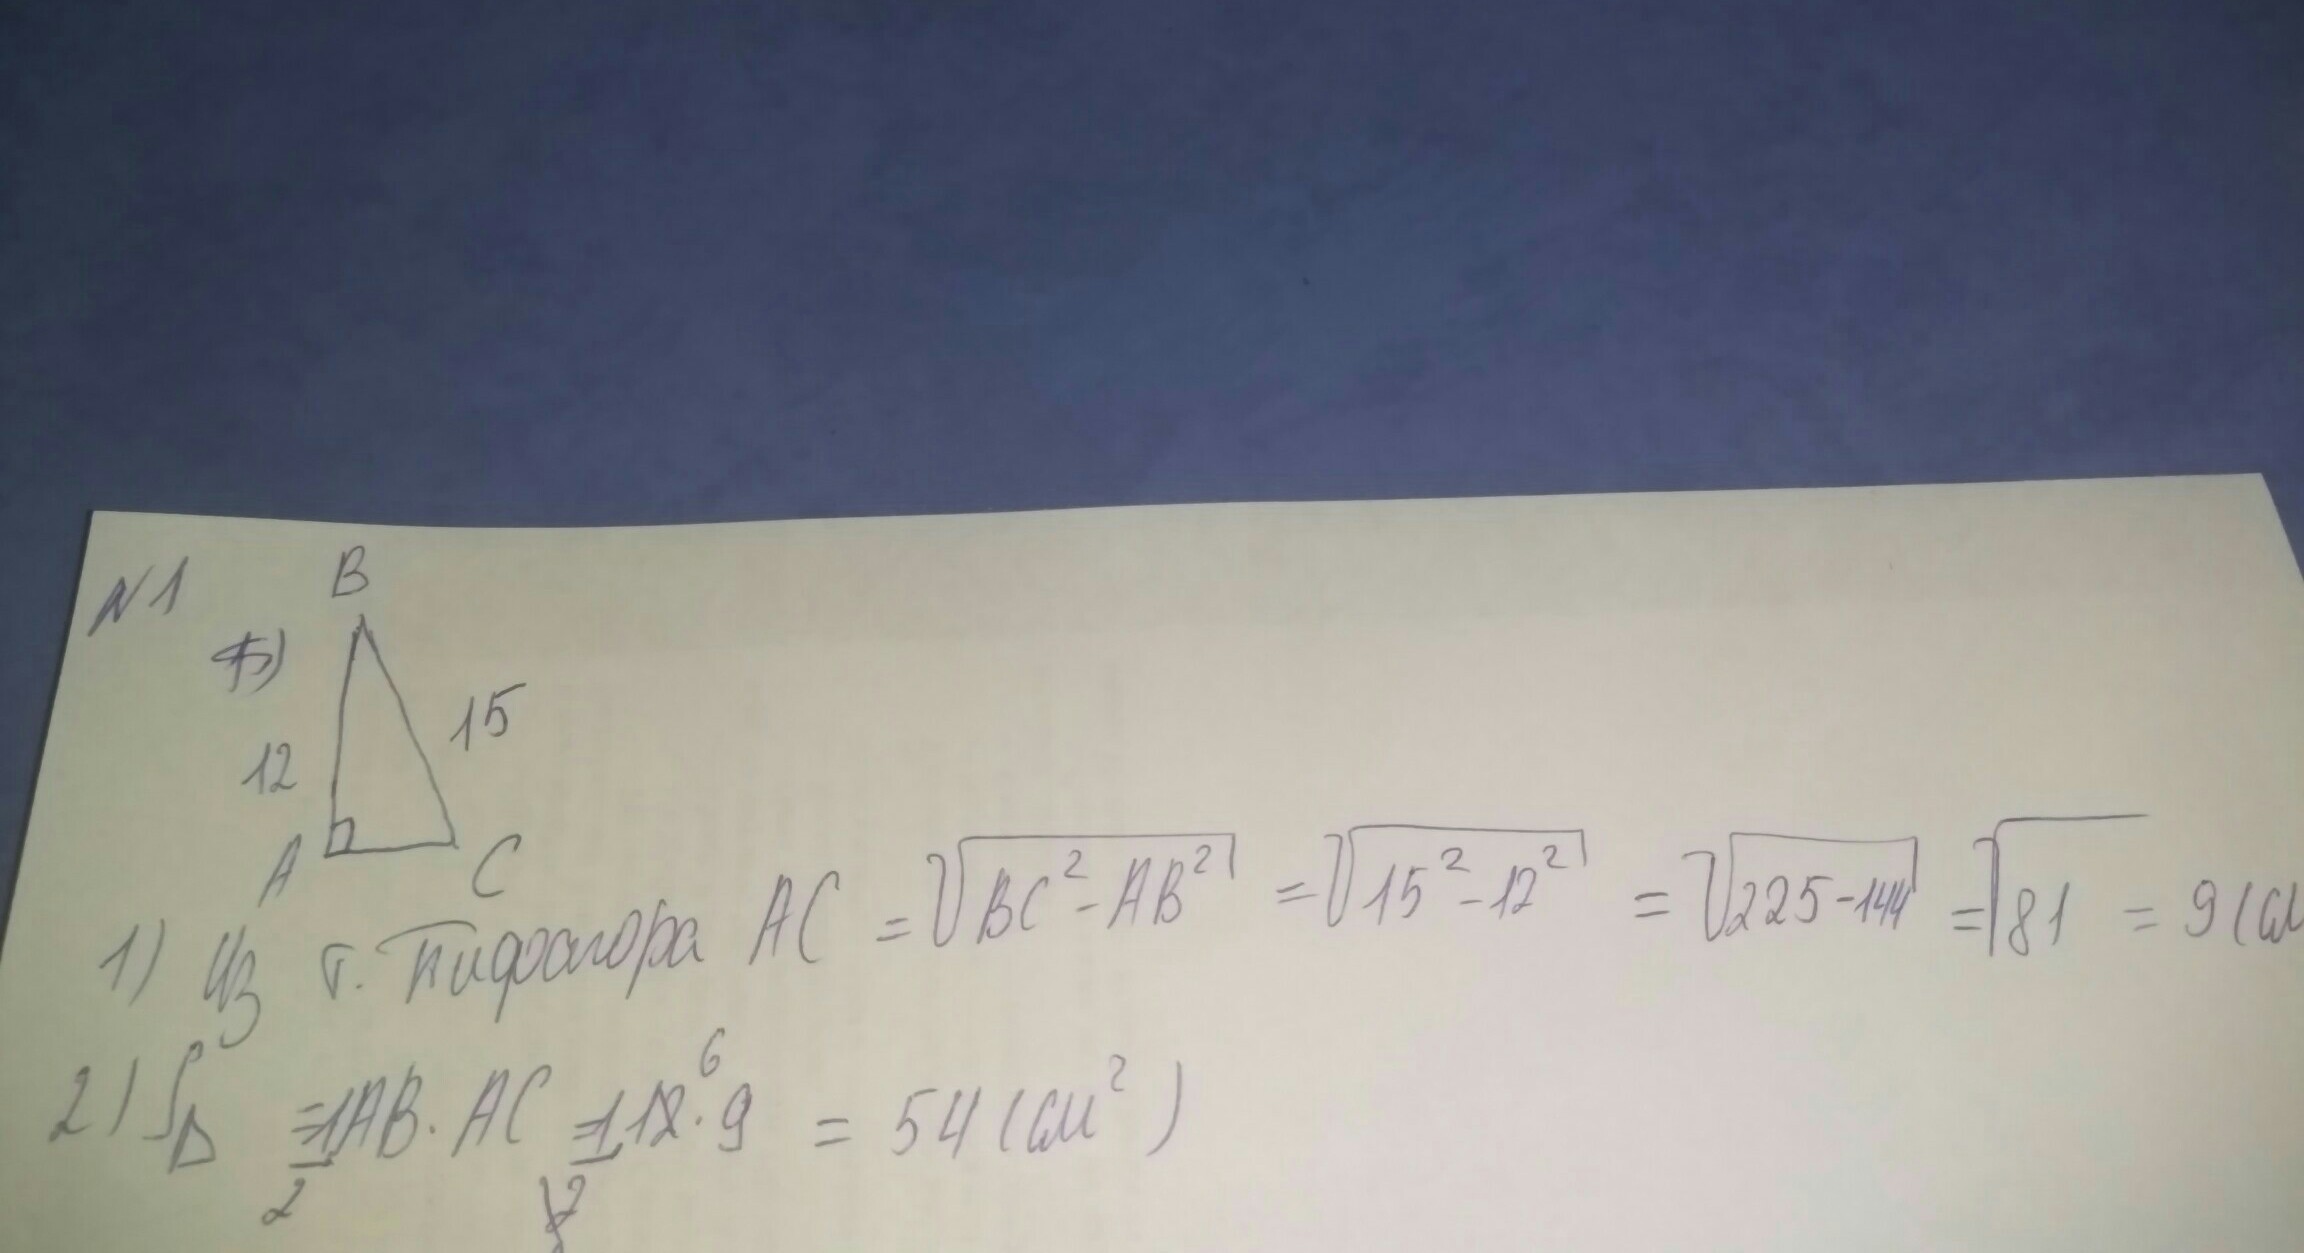 №1
Б)
B
12
15
A
C
1) Из т. Пифагора AC = √(BC² - AB²) = √(15² - 12²) = √(225 - 144) = √81 = 9 (см
2) S△ = 1/2 AB · AC = 1/2 12 · 9 = 54 (см²)
6